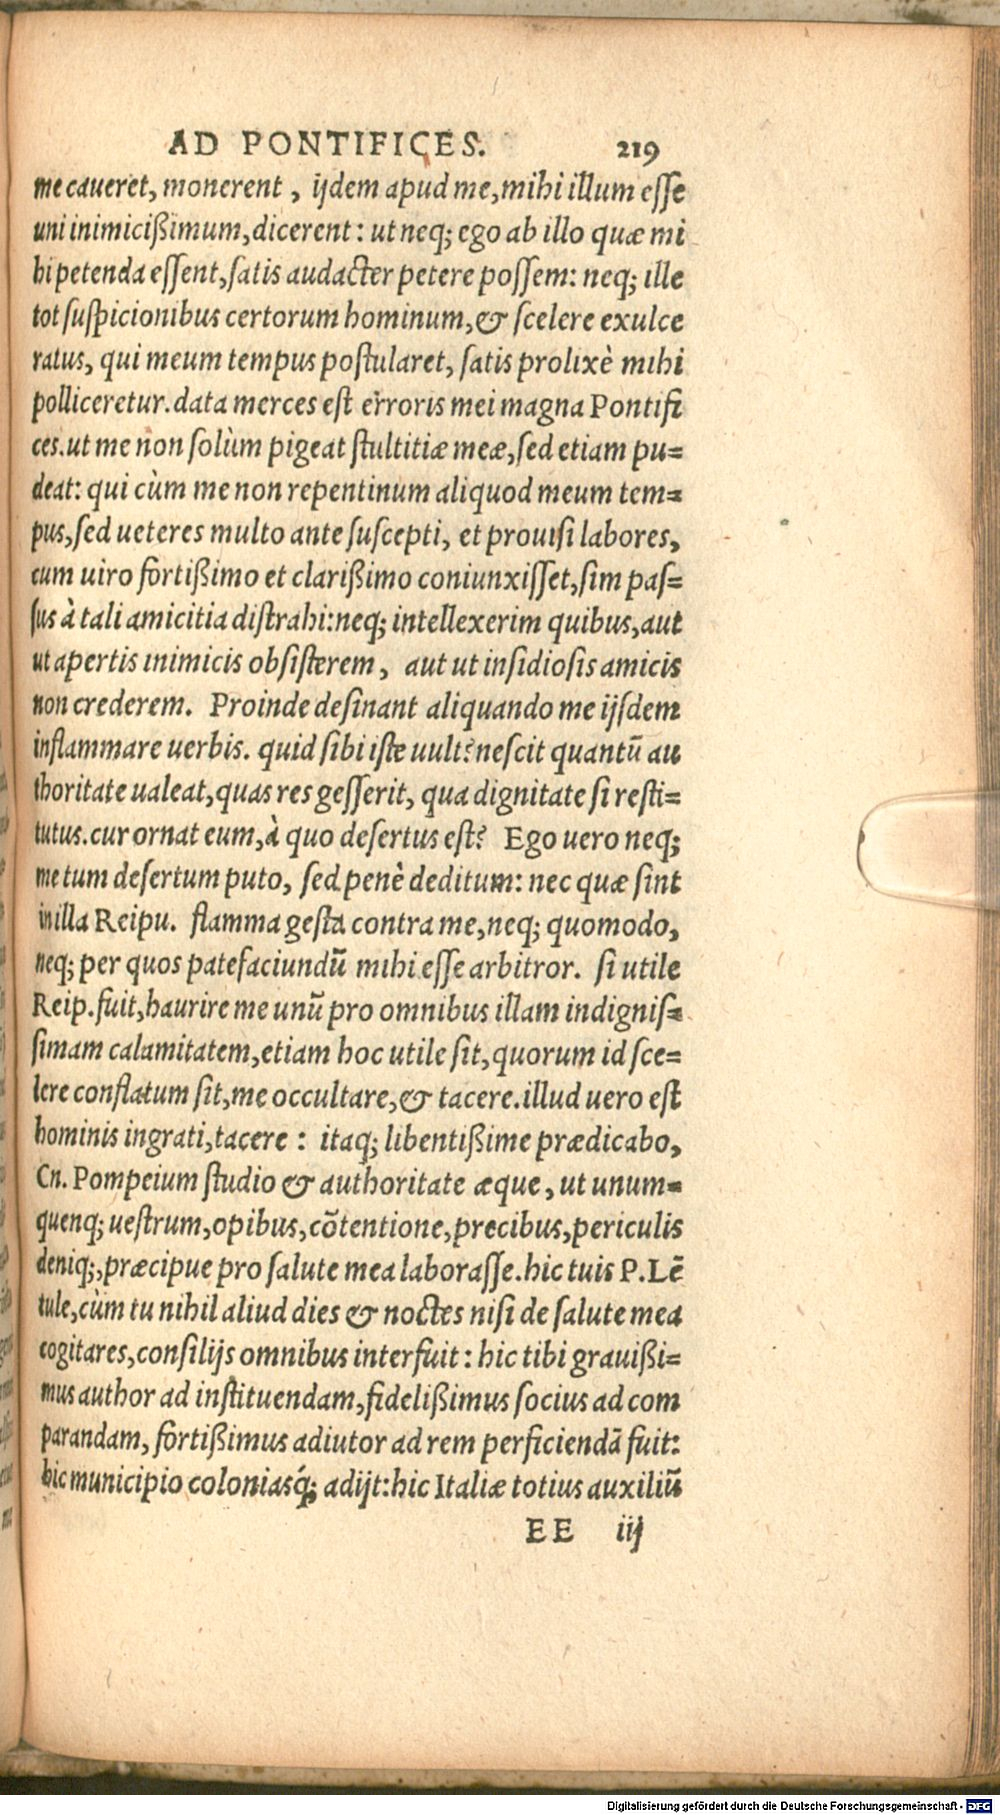 AD PONTIFICES. 219
me caueret, monerent, ijdem apud me, mihi illum eſſe
uni inimicißimum, dicerent: ut neq; ego ab illo quæ mi
hi petenda eſſent, ſatis audacter petere poſſem: neq; ille
tot ſuſpicionibus certorum hominum, & ſcelere exulce
ratus, qui meum tempus poſtularet, ſatis prolixè mihi
polliceretur. data merces eſt erroris mei magna Pontifi
ces. ut me non ſolùm pigeat ſtultitiæ meæ, ſed etiam pu=
deat: qui cùm me non repentinum aliquod meum tem=
pus, ſed ueteres multo ante ſuſcepti, et prouiſi labores,
cum uiro fortißimo et clarißimo coniunxiſſet, ſim paſ=
ſus à tali amicitia diſtrahi: neq; intellexerim quibus, aut
ut apertis inimicis obſiſterem, aut ut inſidioſis amicis
non crederem. Proinde deſinant aliquando me ijſdem
inflammare uerbis. quid ſibi iſte uult? neſcit quantū au
thoritate ualeat, quas res geſſerit, qua dignitate ſi reſti=
tutus. cur ornat eum, à quo deſertus eſt? Ego uero neq;
me tum deſertum puto, ſed penè deditum: nec quæ ſint
in illa Reipu. flamma geſta contra me, neq; quomodo,
neq; per quos patefaciundū mihi eſſe arbitror. ſi utile
Reip. fuit, haurire me unū pro omnibus illam indigniſ=
ſimam calamitatem, etiam hoc utile ſit, quorum id ſce=
lere conflatum ſit, me occultare, & tacere. illud uero eſt
hominis ingrati, tacere: itaq; libentißime prædicabo,
Cn. Pompeium ſtudio & authoritate æque, ut unum=
quenq; ueſtrum, opibus, cōtentione, precibus, periculis
deniq;, præcipue pro ſalute mea laboraſſe. hic tuis P. Lē
tule, cùm tu nihil aliud dies & noctes niſi de ſalute mea
cogitares, conſilijs omnibus interfuit: hic tibi grauißi=
mus author ad inſtituendam, fidelißimus ſocius ad com
parandam, fortißimus adiutor ad rem perficiendā fuit:
hic municipio coloniasq́; adijt: hic Italiæ totius auxiliū
EE iij
Digitalisierung gefördert durch die Deutsche Forschungsgemeinschaft - DFG